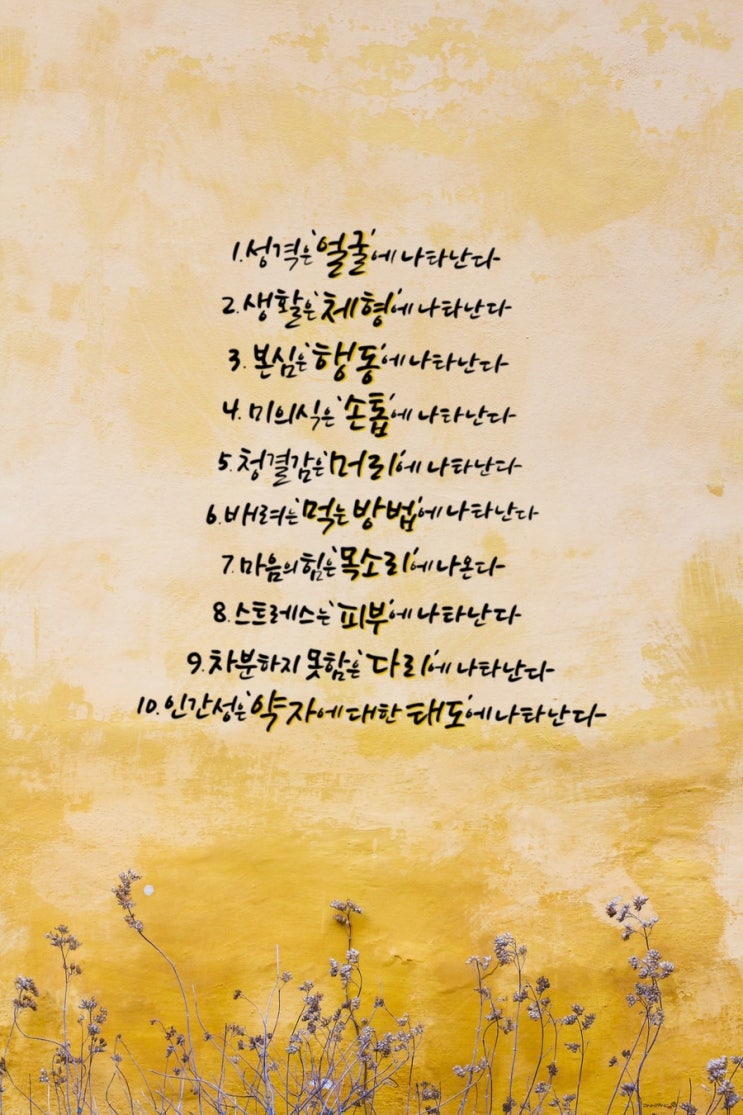 1. 성격은 '얼굴'에 나타난다
2. 생활은 '체형'에 나타난다
3. 본심은 '행동'에 나타난다
4. 미의식은 '손톱'에 나타난다
5. 청결감은 '머리'에 나타난다
6. 배려는 '먹는 방법'에 나타난다
7. 마음의 힘은 '목소리'에 나온다
8. 스트레스는 '피부'에 나타난다
9. 차분하지 못함은 '다리'에 나타난다
10. 인간성은 '약자에 대한 태도'에 나타난다